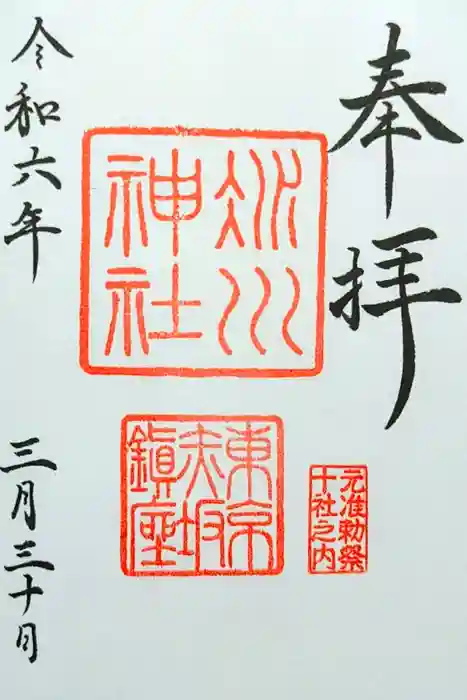 奉拝
氷川
神社
東京
赤坂
鎮座
元准勅祭
十社之内
令和六年
三月三十日